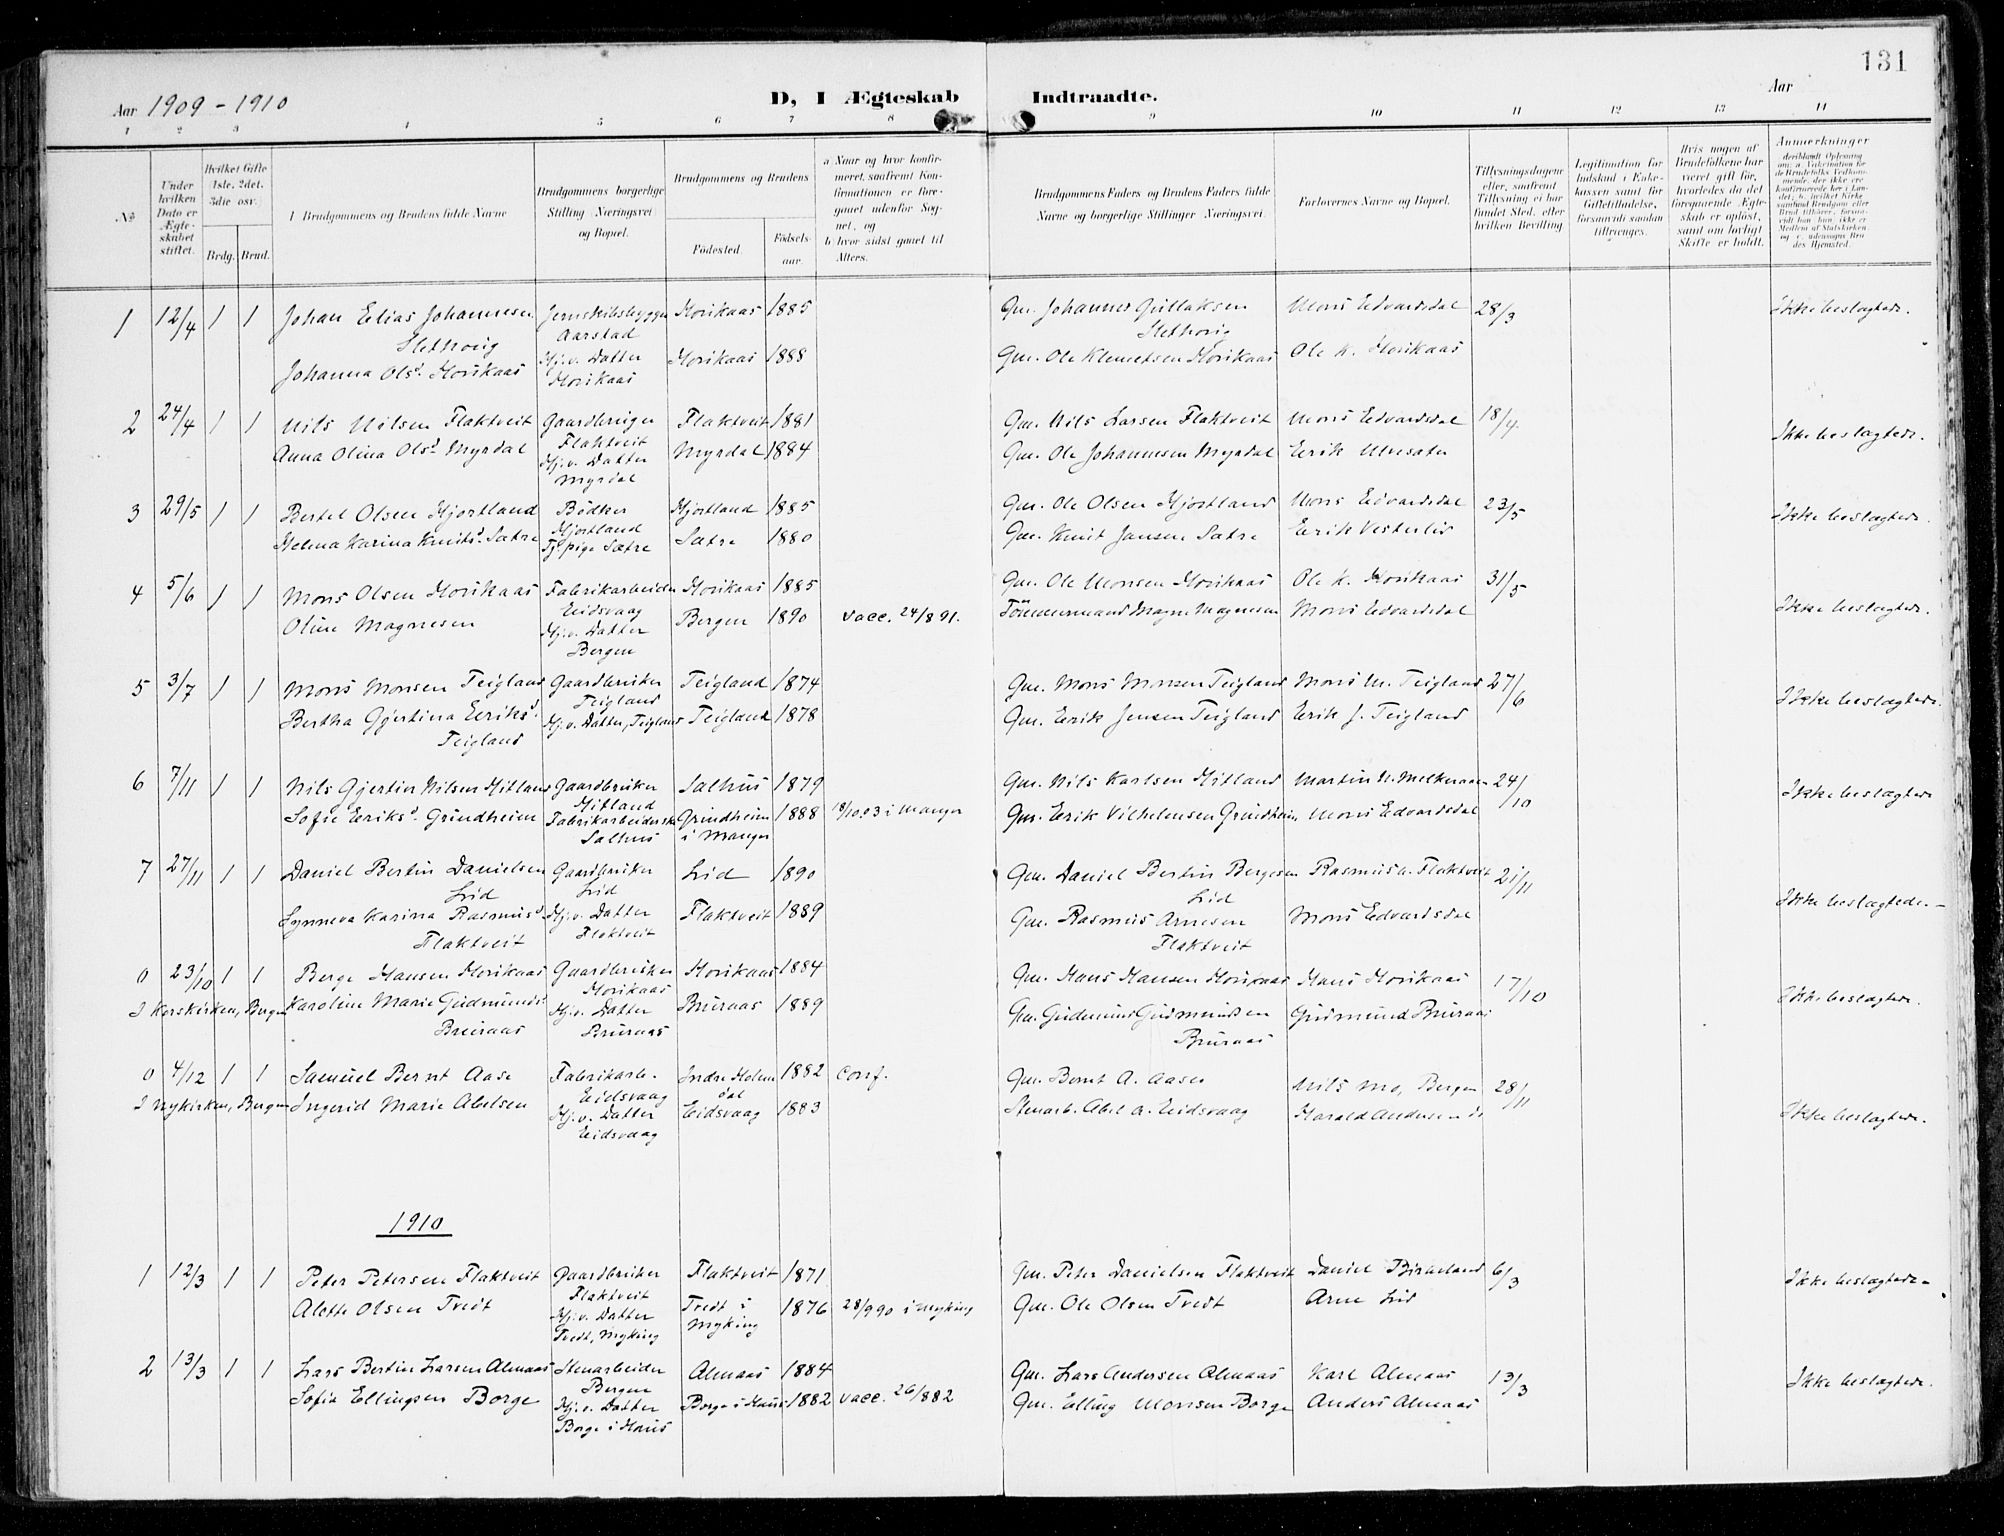 131
Aar 1909 - 1910 D, I Ægteskab Indtraadte. Aar
1 2 3 4 5 6 7 8 9 10 11 12 13 14
No
Under hvilken Dato er Ægteskabet stiftet.
Hvilket Gifte 1ste, 2det, 3die osv.
Brdg. Brud.
Brudgommens og Brudens fulde Navne
Brudgommens borgerlige Stilling Næringsvei og Bopæl.
Brudgommens og Brudens
Fødested.
Fødsels-aar.
a Naar og hvor konfirmeret, saafremt Konfirmationen er foregaaet udenfor Sognet, og
b hvor sidst gaaet til Alters.
Brudgommens Faders og Brudens Faders fulde Navne og borgerlige Stillinger Næringsvei.
Forlovernes Navne og Bopæl.
Tillysningsdagene eller, saafremt Tillysning ei har fundet Sted, efter hvilken Bevilling.
Legitimation for Indskud i Enkekassen samt for Giftetilladelse, forsaavidt saadan tiltrænges.
Hvis nogen af Brudefolkene har været gift før, hvorledes da det foregaaende Ægteskab er opløst, samt om lovligt Skifte er holdt.
Anmærkninger
1 12/4 1 1 Johan Elias Johannesen Jernskibsbygger Horikaas 1885 Gm. Johannes Gullaksen Mons Edvardsdal 28/3 Ikke beslægtede.
Slethovig Aarstad Slethovig
Johanna Olsd. Horikaas Hj.v. Datter Horikaas 1888 Gm. Ole Klemetsen Horikaas Ole K. Horikaas
Horikaas
2 24/4 1 1 Nils Nilsen Flaktveit Gaardbruger Flaktveit 1881 Gm. Nils Larsen Flaktveit Mons Edvardsdal 18/4 Ikke beslægtede.
Flaktveit
Anna Olina Olsd. Myrdal Hj.v. Datter Myrdal 1884 Gm. Ole Johannesen Myrdal Eerik
Myrdal
3 29/5 1 1 Bertel Olsen Hjortland Bødker Hjortland 1885 Gm. Ole Olsen Hjortland Mons Edvardsdal 23/5 Ikke beslægtede.
Hjortland
Helena Karina Knutsd. Sætre Tj.pige Sætre Sætre 1880 Gm. Knut Jansen Sætre Eerik Vesterlid
4 5/6 1 1 Mons Olsen Horikaas Fabrikarbeider Horikaas 1885 Gm. Ole Monsen Horikaas Ole K. Horikaas 31/5 Ikke beslægtede.
Eidsvaag
Oline Magnesen Hj.v. Datter Bergen 1890 Vacc. 24/8 91. Tömmermand Magne Magnesen Mons Edvardsdal
Bergen
5 3/7 1 1 Mons Monsen Teigland Gaardbruker Teigland 1874 Gm. Mons Monsen Teigland Mons M. Teigland 27/6 Ikke beslægtede.
Teigland
Bertha Gjertina Eeriksd. Hj.v. Datter, Teigland Teigland 1878 Gm. Eerik Jensen Teigland Eerik J. Teigland
Teigland
6 7/11 1 1 Nils Gjertin Nilsen Hitland Gaardbruker Salhus 1879 Gm. Nils Karlsen Hitland Martin N. Melkeraaen 24/10 Ikke beslægtede
Hitland
Sofie Eeriksd. Grindheim Fabrikarbeiderske Grindheim 1888 18/10.03 i Manger Gm. Eerik Vilhelmsen Grindheim Mons Edvardsdal
Salhus i Manger
7 27/11 1 1 Daniel Bertin Danielsen Gaardbruker Lid 1890 Gm. Daniel Bertin Bergesen Rasmus A. Flaktveit 21/11 Ikke beslægtede.
Lid Lid Lid
Synneva Karina Rasmusd. Hj.v. Datter Flaktveit 1889 Gm. Rasmus Arnesen Mons Edvardsdal
Flaktveit Flaktveit Flaktveit
0 23/10 1 1 Berge Hansen Horikaas Gaardbruker Horikaas 1884 Gm. Hans Hansen Horikaas Hans Horikaas 17/10 Ikke beslægtede.
Horikaas
I Korskirken, Bergen Karoline Marie Gudmundsd. Hj.v. Datter Bruraas 1889 Gm. Gudmund Gudmundsen Gudmund Bruraas
Bruraas Bruraas Bruraas
0 4/12 1 1 Samuel Bernt Aase Fabrikarb. Indre Holmedal 1882 Conf. Gm. Bernt A. Aase Nils Mo, Bergen 28/11 Ikke beslægtede.
Eidsvaag
I Nykirken, Bergen Ingerid Marie Abelsen Hj.v. Datter Eidsvaag 1883 Stenarb. Abel A. Eidsvaag Harald Andersen
Eidsvaag
1910
1 12/3 1 1 Peter Petersen Flaktveit Gaardbruker Flaktveit 1871 Gm. Peter Danielsen Flaktveit Daniel Birkeland 6/3 Ikke beslægtede.
Flaktveit
Alette Olsen Tvedt Hj.v. Datter Tvedt i Myking 1876 28/9 90 i Myking Gm. Ole Olsen Tvedt Arne Lid
Tvedt, Myking
2 13/3 1 1 Lars Bertin Larsen Almaas Stenarbeider Almaas 1884 Gm. Lars Andersen Almaas Karl Almaas 13/3 Ikke beslægtede.
Bergen
Sofia Ellingsen Borge Hj.v. Datter Borge i Haus 1882 Vacc. 26/8 82 Gm. Elling Monsen Borge Anders Almaas
Borge i Haus